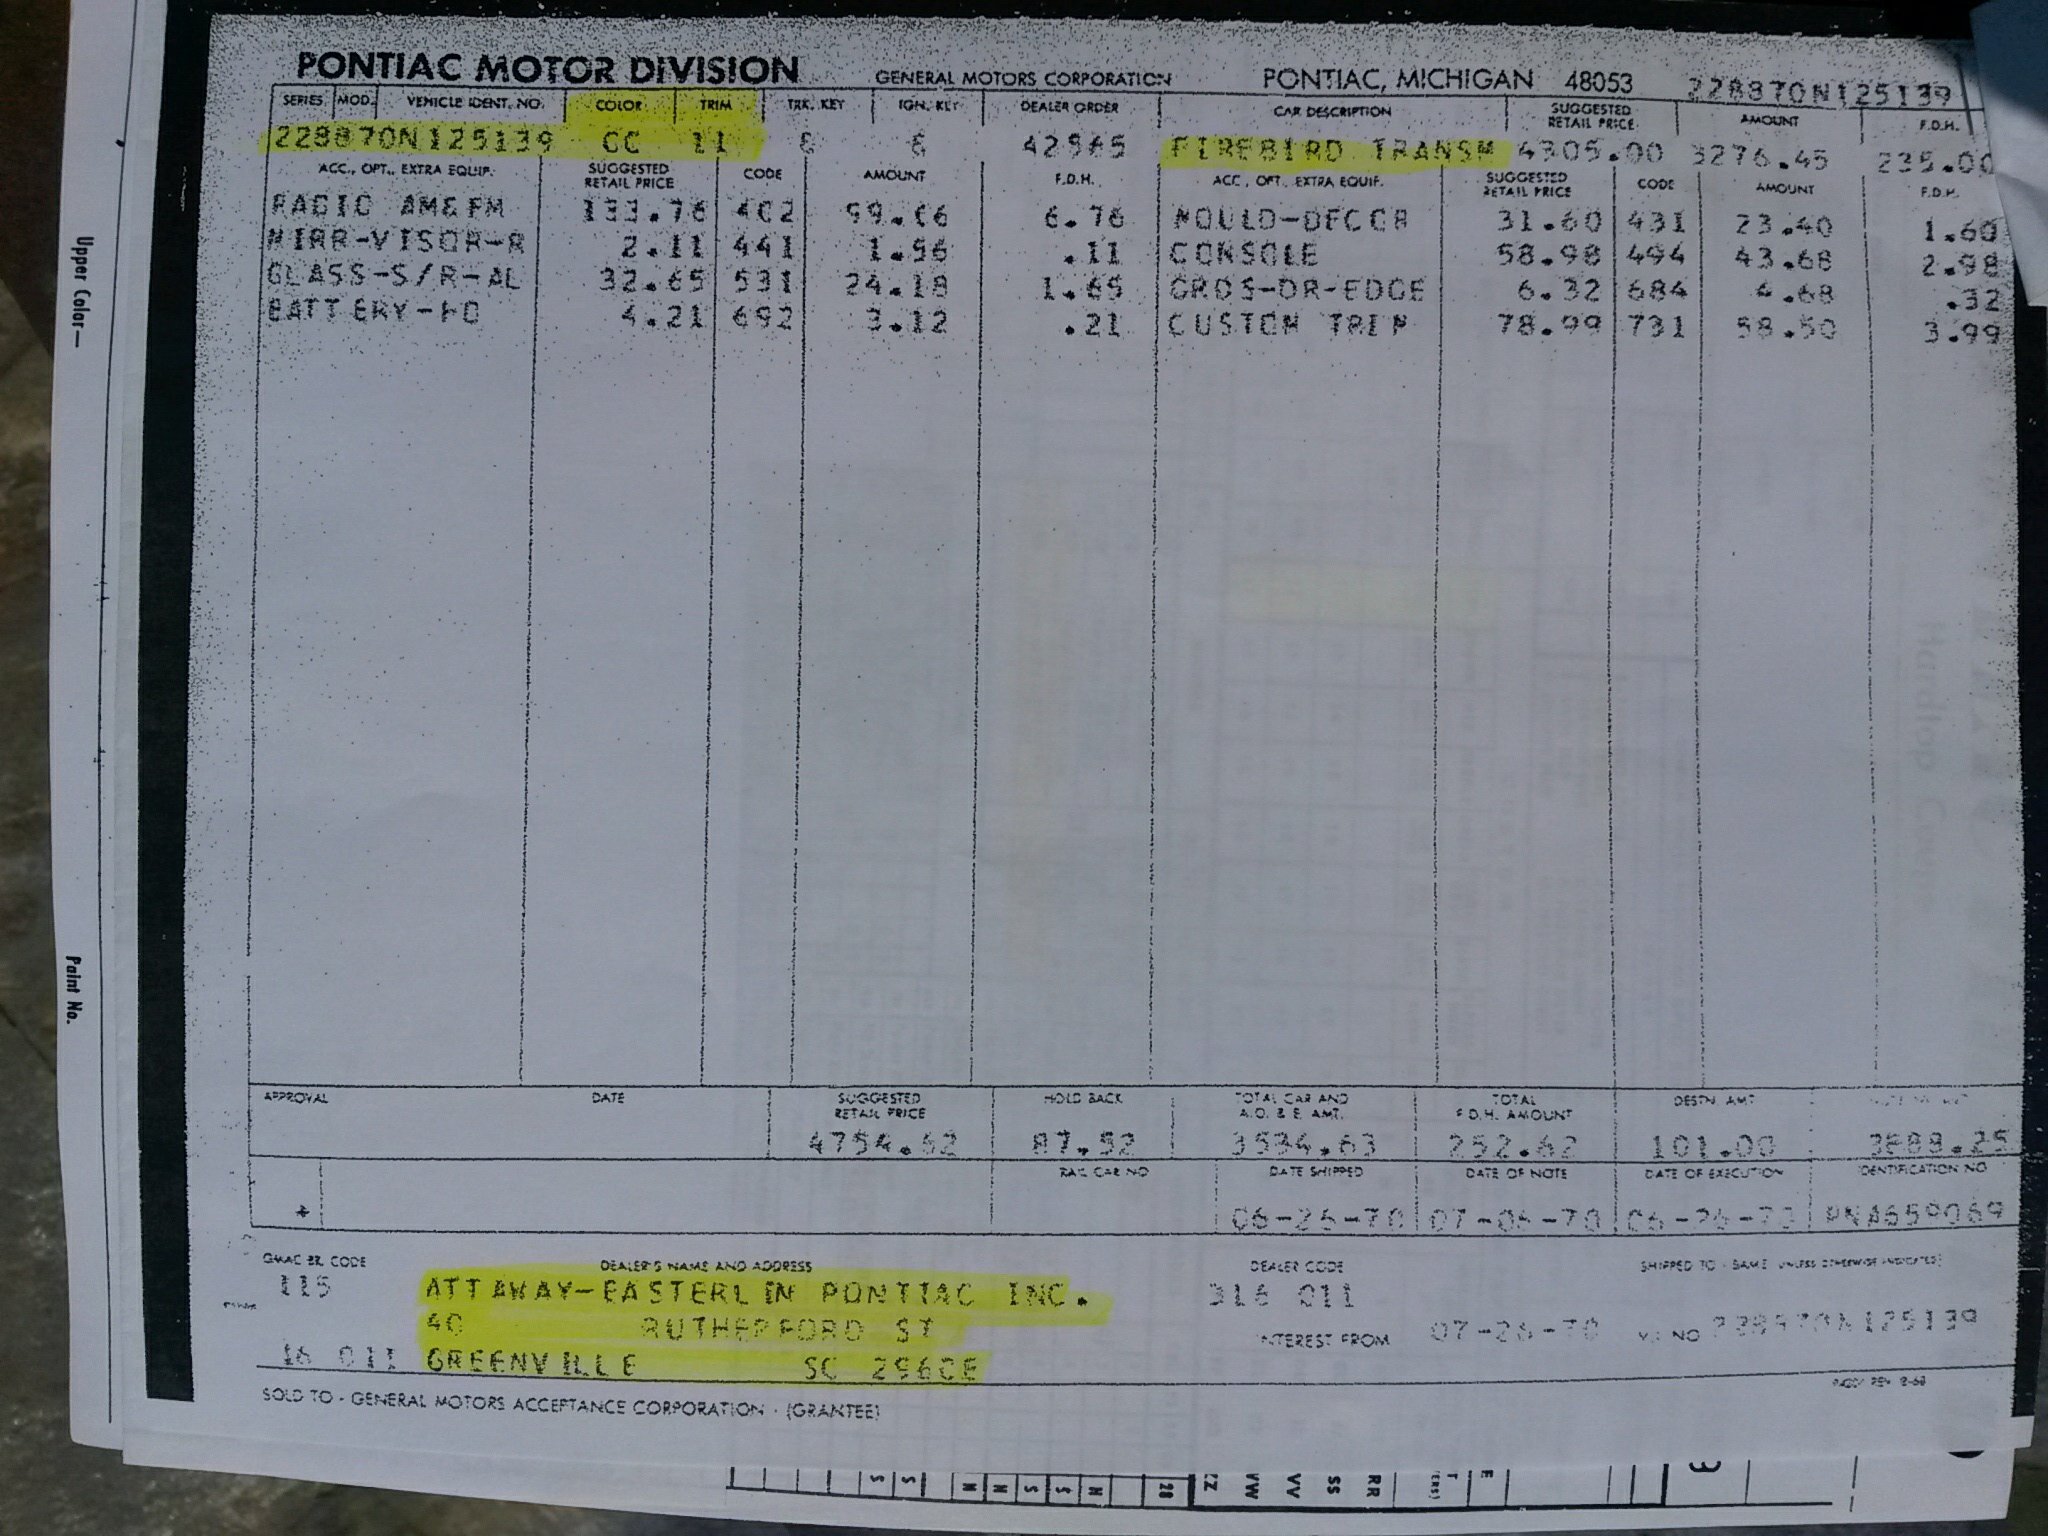 PONTIAC MOTOR DIVISION GENERAL MOTORS CORPORATION PONTIAC, MICHIGAN 48053 228870N125139
SERIES MOD. VEHICLE IDENT. NO. COLOR TRIM TRK. KEY IGN. KEY DEALER ORDER CAR DESCRIPTION SUGGESTED RETAIL PRICE AMOUNT F.D.H.
228870N125139 CC 11 6 6 42565 FIREBIRD TRANSM 4305.00 3276.45 235.00
ACC., OPT., EXTRA EQUIP. SUGGESTED RETAIL PRICE CODE AMOUNT F.D.H. ACC., OPT., EXTRA EQUIF. SUGGESTED RETAIL PRICE CODE AMOUNT F.D.H.
RADIO AM&FM 133.76 402 99.06 6.76 MOULD-DECOR 31.60 431 23.40 1.60
MIRR-VISOR-R 2.11 441 1.56 .11 CONSOLE 58.98 494 43.68 2.98
GLASS-S/R-AL 32.65 531 24.18 1.65 GRDS-DR-EDGE 6.32 684 4.68 .32
BATTERY-HD 4.21 692 3.12 .21 CUSTOM TRIM 78.99 731 58.50 3.99
Upper Color—
Paint No.
APPROVAL DATE SUGGESTED RETAIL PRICE HOLD BACK TOTAL CAR AND A.O. & E. AMT. TOTAL F.D.H. AMOUNT DESTN. AMT
4754.62 87.52 3534.63 252.62 101.00 3888.25
RAIL CAR NO DATE SHIPPED DATE OF NOTE DATE OF EXECUTION IDENTIFICATION NO
06-26-70 07-06-70 06-26-70 PNA659069
GMAC BR. CODE DEALER'S NAME AND ADDRESS DEALER CODE SHIPPED TO - SAME UNLESS OTHERWISE INDICATED:
115 ATTAWAY-EASTERLIN PONTIAC INC. 316 011
40 RUTHERFORD ST INTEREST FROM 07-26-70 NO 228870N125139
16 011 GREENVILLE SC
SOLD TO - GENERAL MOTORS ACCEPTANCE CORPORATION - (GRANTEE)